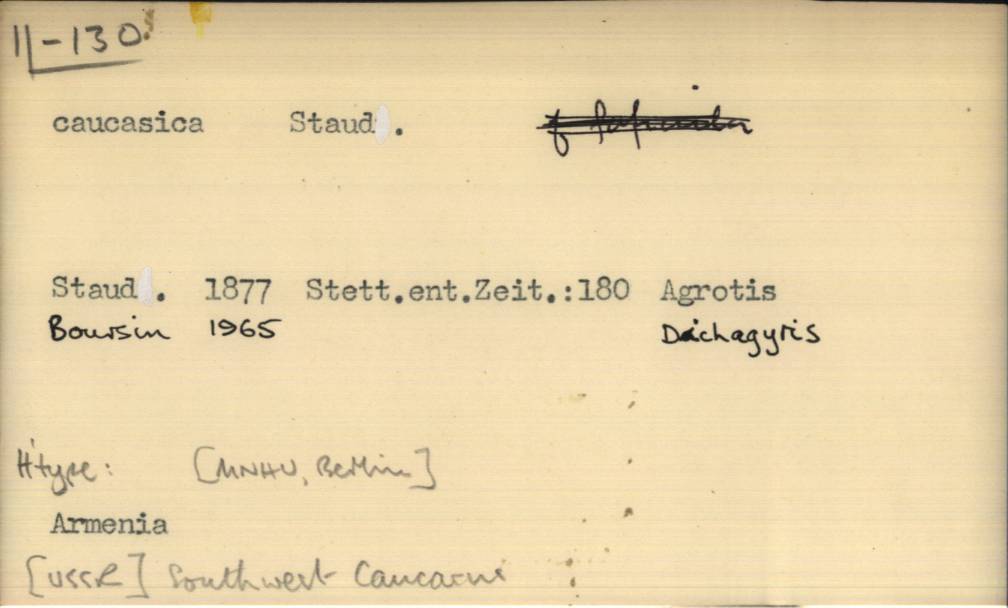 11-130
caucasica Staud.
Staud. 1877 Stett.ent.Zeit.:180 Agrotis
Boursin 1965 Dichagyris
H'type: [MNHU, Berlin]
Armenia
[USSR] Southwest Caucasus